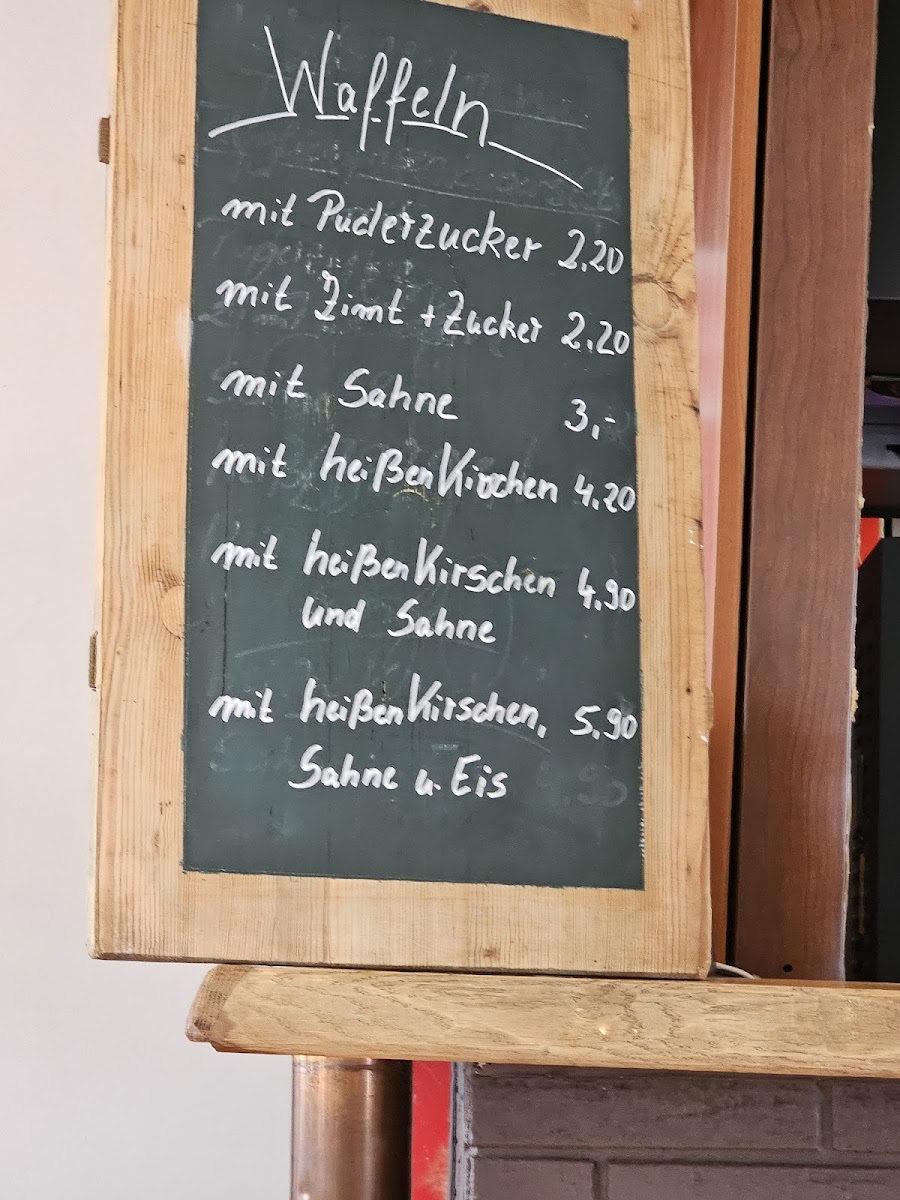 Waffeln
mit Puderzucker 2.20
mit Zimt + Zucker 2.20
mit Sahne 3,-
mit heißen Kirschen 4.20
mit heißen Kirschen 4.90
und Sahne
mit heißen Kirschen, 5.90
Sahne u. Eis